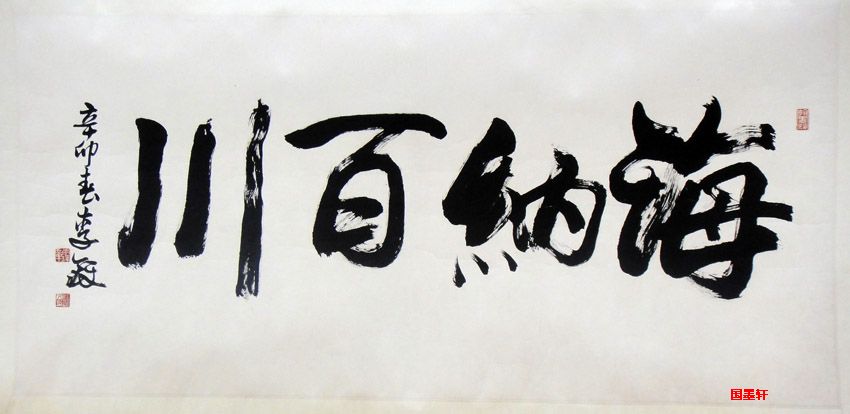 海納百川
辛卯春李
国墨轩